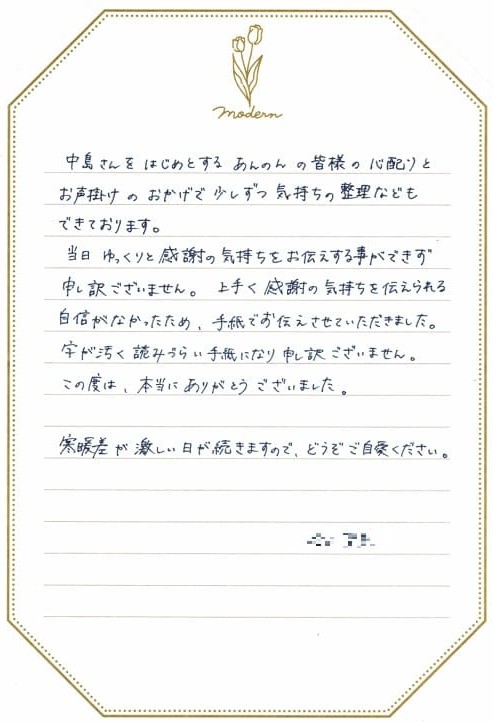 modern
中島さんをはじめとする あんのんの皆様の心配りと
お声掛けのおかげで少しずつ気持ちの整理なども
できております。
当日ゆっくりと感謝の気持ちをお伝えする事ができず
申し訳ございません。上手く感謝の気持ちを伝えられる
自信がなかったため、手紙でお伝えさせていただきました。
字が汚く読みづらい手紙になり申し訳ございません。
この度は、本当にありがとうございました。
寒暖差が激しい日が続きますので、どうぞご自愛ください。